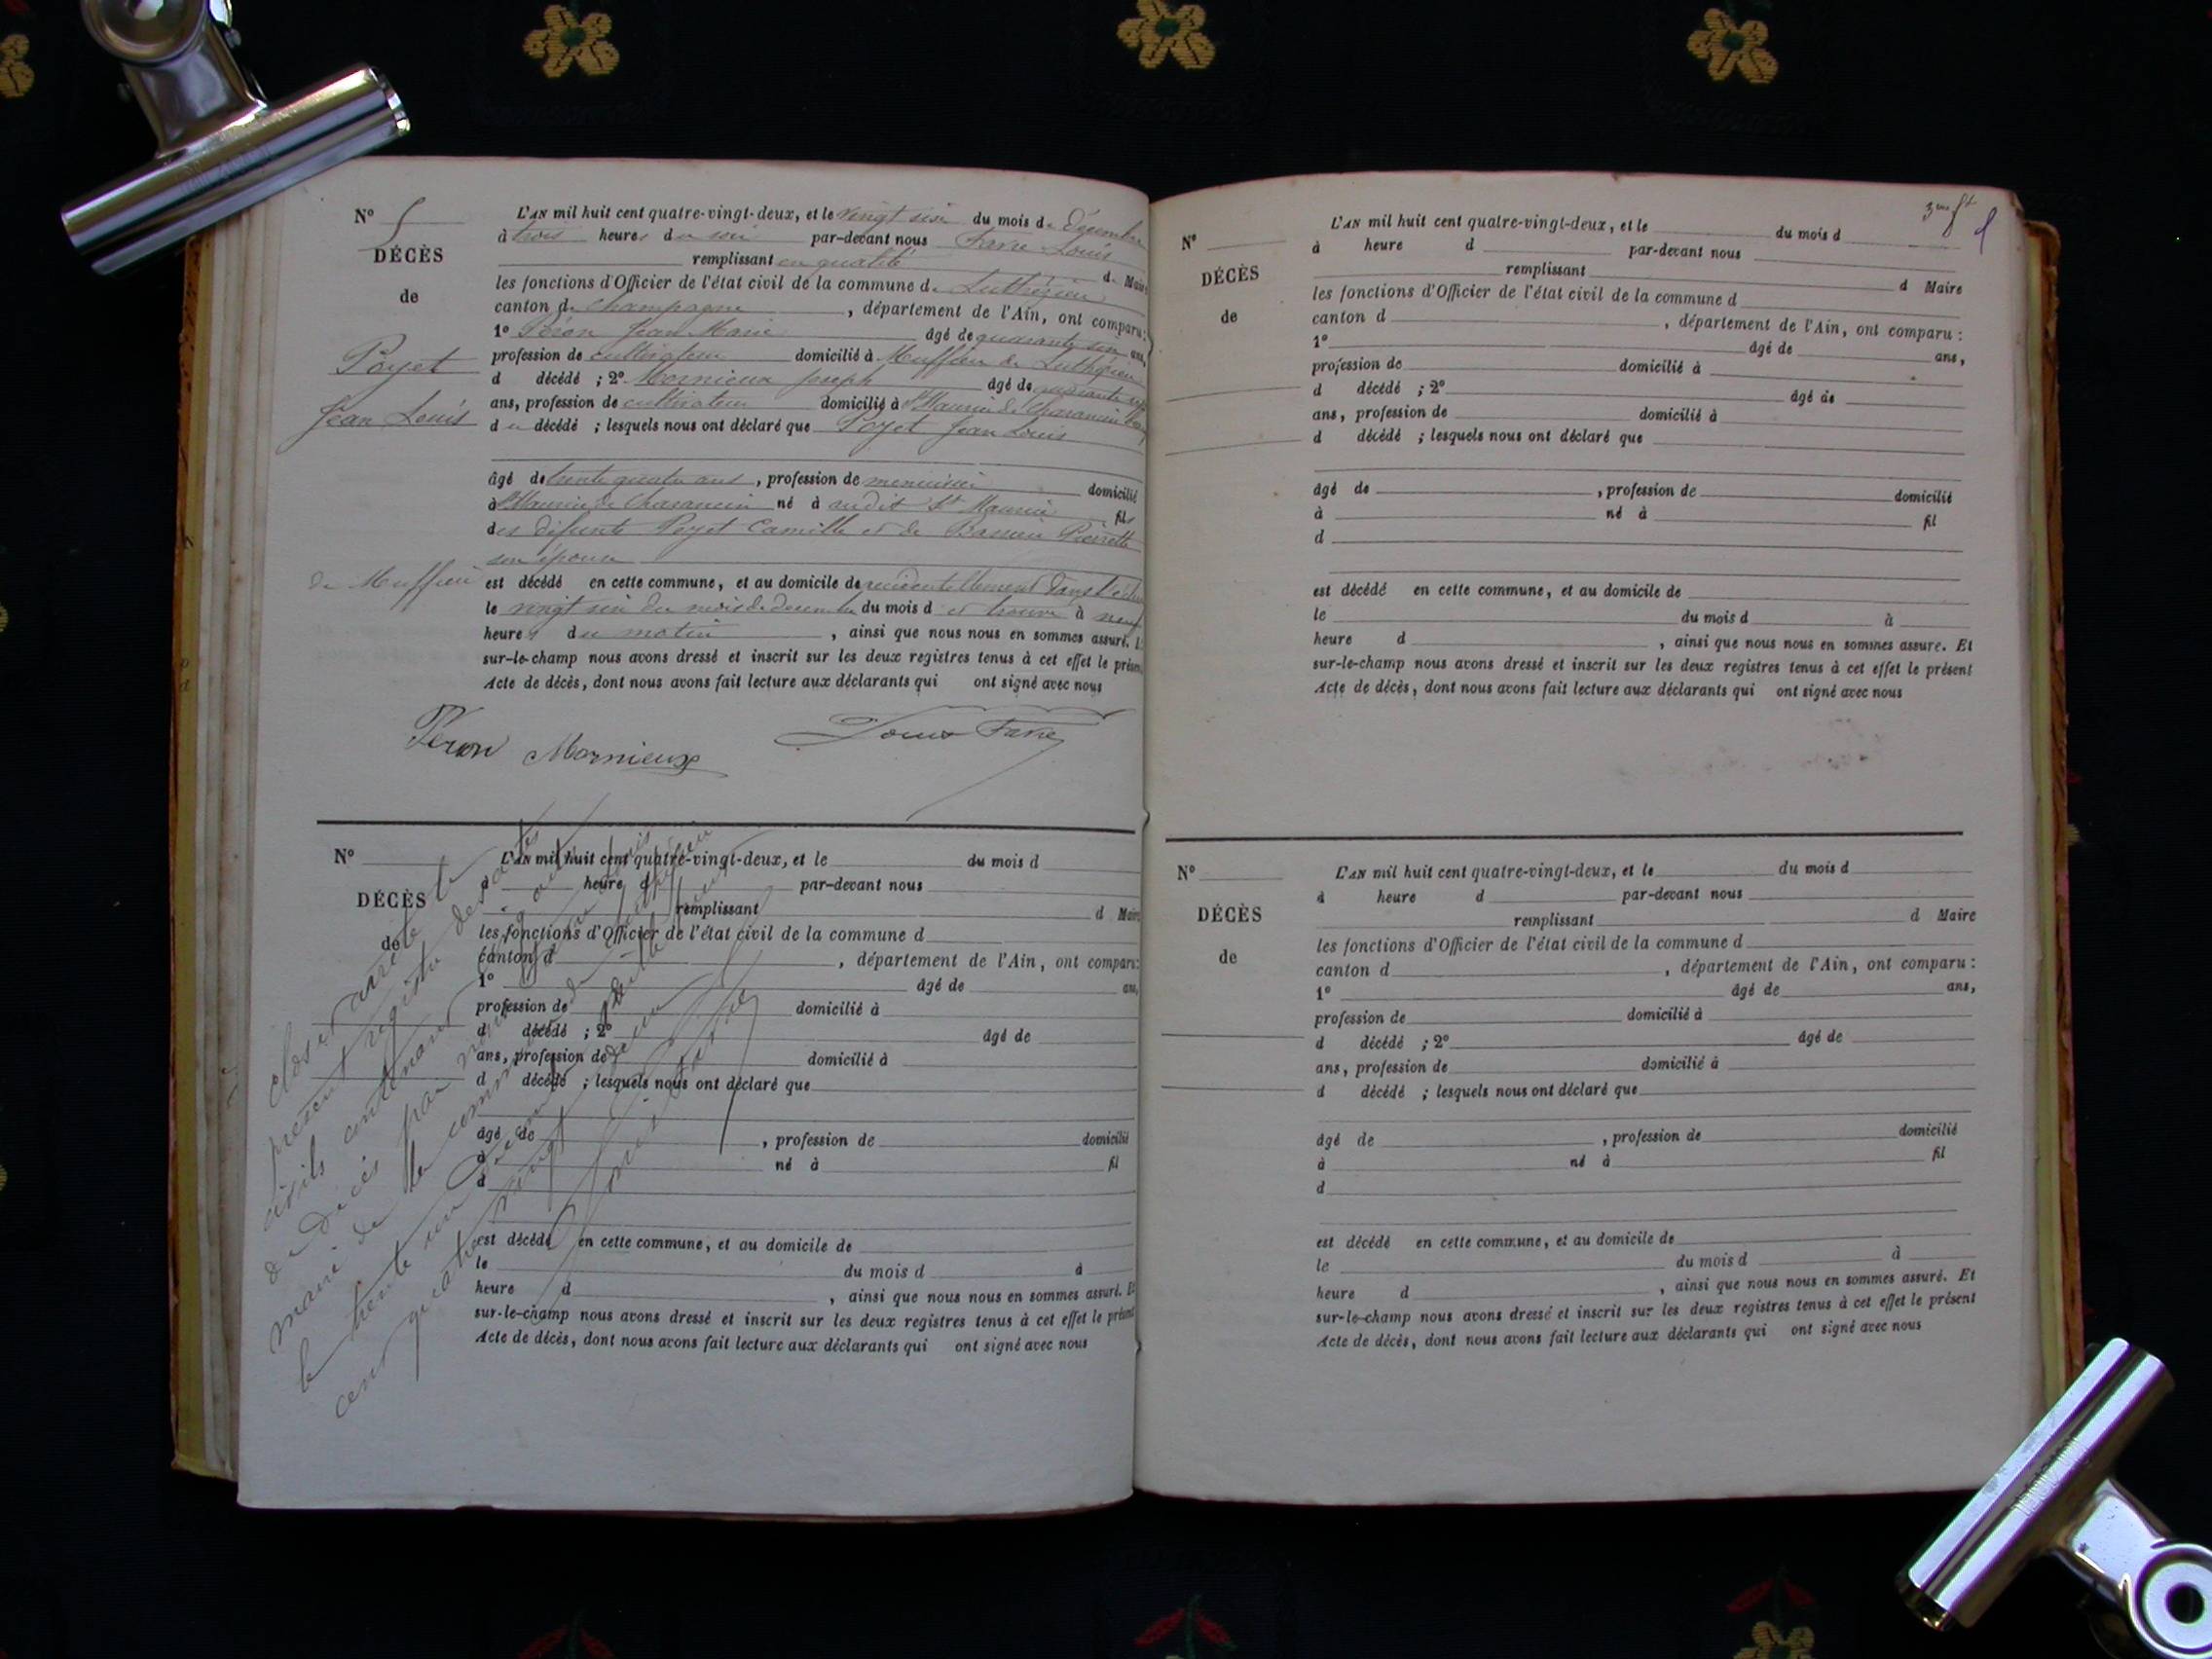 N° 5
DÉCÈS
de
Poyet
Jean Louis
de Muffieu
L'AN mil huit cent quatre-vingt-deux, et le vingt six du mois de Décembre
à trois heures du soir par-devant nous Favre Louis
remplissant en qualité de Maire
les fonctions d'Officier de l'état civil de la commune de Luthézieu
canton de champagne, département de l'Ain, ont comparu :
1° Péron Jean Marie âgé de quarante six ans,
profession de cultivateur domicilié à Muffieu de Luthézieu
d décédé ; 2° Mornieux Joseph âgé de quarante
ans, profession de cultivateur domicilié à St Maurice de Charancin
du décédé ; lesquels nous ont déclaré que Poyet Jean Louis
âgé de trente quatre ans, profession de menuisier domicilié
à St Maurice de Charancin né à susdit St Maurice fils
des défunts Poyet Camille et de Pierrette
son épouse
est décédé en cette commune, et au domicile de accidentellement dans
le vingt six du mois de decembre du mois d et trouvé à neuf
heures du matin, ainsi que nous nous en sommes assuré. E
sur-le-champ nous avons dressé et inscrit sur les deux registres tenus à cet effet le présent
Acte de décès, dont nous avons fait lecture aux déclarants qui ont signé avec nous
Péron Mornieux Louis Favre
N°
DÉCÈS
de
L'AN mil huit cent quatre-vingt-deux, et le du mois d
à heure d par-devant nous
remplissant d Maire
les fonctions d'Officier de l'état civil de la commune d
canton d , département de l'Ain, ont comparu :
1° âgé de ans,
profession de domicilié à
d décédé ; 2° âgé de
ans, profession de domicilié à
d décédé ; lesquels nous ont déclaré que
âgé de , profession de domicilié
à né à fil
d
est décédé en cette commune, et au domicile de
le du mois d à
heure d , ainsi que nous nous en sommes assuré. Et
sur-le-champ nous avons dressé et inscrit sur les deux registres tenus à cet effet le présent
Acte de décès, dont nous avons fait lecture aux déclarants qui ont signé avec nous
Clos et arrêté le
présent registre des actes
civils contenant
de Décès par nous
maire de la commune de Luthézieu
le trente un Décembre mil huit
cent quatre vingt deux
3me ft
N°
DÉCÈS
de
L'AN mil huit cent quatre-vingt-deux, et le du mois d
à heure d par-devant nous
remplissant d Maire
les fonctions d'Officier de l'état civil de la commune d
canton d , département de l'Ain, ont comparu :
1° âgé de ans,
profession de domicilié à
d décédé ; 2° âgé de
ans, profession de domicilié à
d décédé ; lesquels nous ont déclaré que
âgé de , profession de domicilié
à né à fil
d
est décédé en cette commune, et au domicile de
le du mois d à
heure d , ainsi que nous nous en sommes assuré. Et
sur-le-champ nous avons dressé et inscrit sur les deux registres tenus à cet effet le présent
Acte de décès, dont nous avons fait lecture aux déclarants qui ont signé avec nous
N°
DÉCÈS
de
L'AN mil huit cent quatre-vingt-deux, et le du mois d
à heure d par-devant nous
remplissant d Maire
les fonctions d'Officier de l'état civil de la commune d
canton d , département de l'Ain, ont comparu :
1° âgé de ans,
profession de domicilié à
d décédé ; 2° âgé de
ans, profession de domicilié à
d décédé ; lesquels nous ont déclaré que
âgé de , profession de domicilié
à né à fil
d
est décédé en cette commune, et au domicile de
le du mois d à
heure d , ainsi que nous nous en sommes assuré. Et
sur-le-champ nous avons dressé et inscrit sur les deux registres tenus à cet effet le présent
Acte de décès, dont nous avons fait lecture aux déclarants qui ont signé avec nous